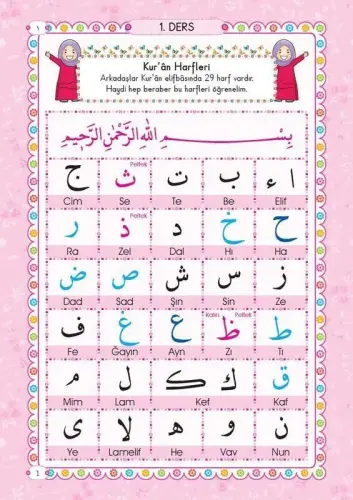 ١
1. DERS
١
Kur'ân Harfleri
Arkadaşlar Kur'ân elifbâsında 29 harf vardır.
Haydi hep beraber bu harfleri öğrenelim.
بِسْمِ اللهِ الرَّحْمٰنِ الرَّحِيمِ
Peltek
ا ء ب ت ث ج
Elif Be Te Se Cim
Peltek
ح خ د ذ ر
Ha Hı Dal Zel Ra
ز س ش ص ض
Ze Sin Şın Sad Dad
Peltek Kalın
ط ظ ع غ ف
Tı Zı Ayn Ğayın Fe
ق ك ك ل م
Kaf Kef Lam Mim
ن و ه لا ى
Nun Vav He Lamelif Ye
1